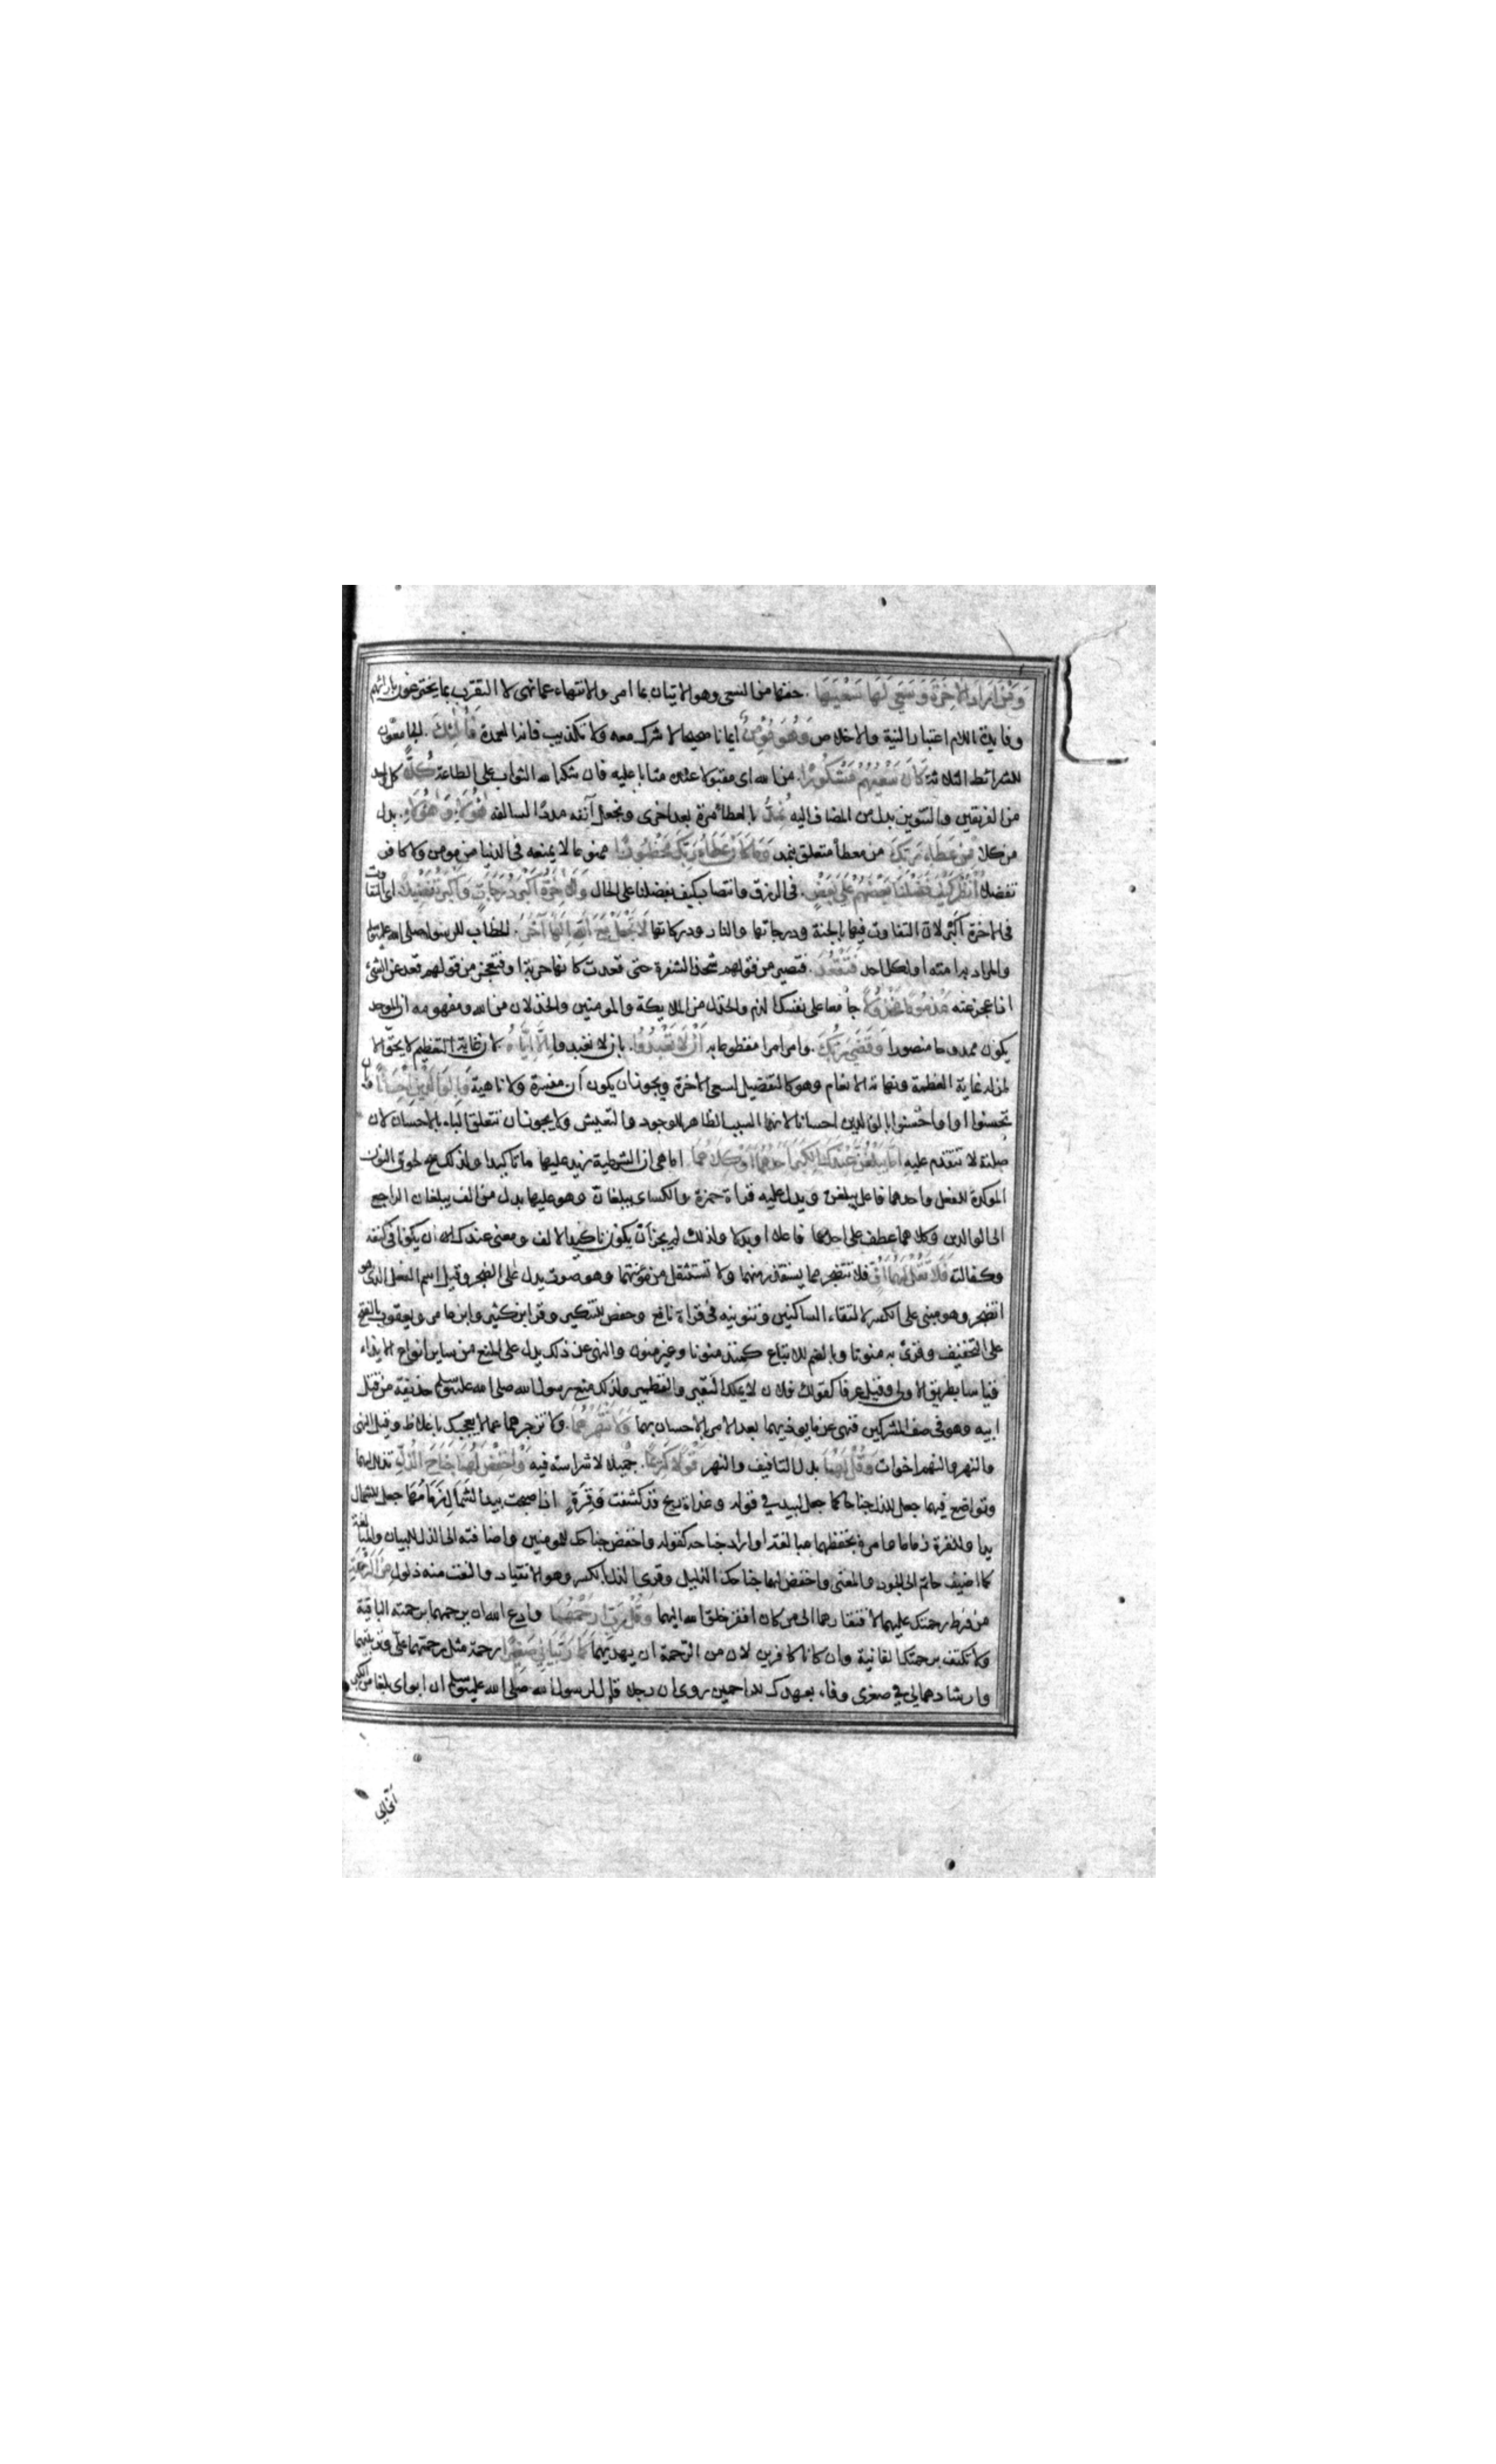 وَمَنْ اَرَادَ الاخِرَةَ وَسَعَى لَهَا سَعْيَهَا. حقها من السعى وهو الاتيان بما امر والانتهاء عما نهى لا التقرب بما يخترعون بارائهم
وفايدة اللام اعتبار النية والاخلاص وَهُوَ مُؤْمِنٌ ايمانا صحيحا لا شرك معه ولا تكذيب فانه العمدة فَاُلئِكَ. الجامعون
للشرائط الثلاثة كَانَ سَعْيُهُمْ مَشْكُورًا. من الله اى مقبولا عنده مثابا عليه فان شكر الله الثواب على الطاعة كُلًّا كل واحد
من الفريقين والتنوين بدل من المضاف اليه نُمِدُّ بالعطا مرة بعد اخرى ونجعل آنفه مددًا لسالفه هٰؤُلَاءِ وَهٰؤُلَاءِ. بدل
من كلا مِنْ عَطَاءِ رَبِّكَ من معطاه متعلق بنمد وَمَا كَانَ عَطَاءُ رَبِّكَ مَحْظُورًا ممنوعا لا يمنعه فى الدنيا من مومن ولا كافر
تفضلا اُنْظُرْ كَيْفَ فَضَّلْنَا بَعْضَهُمْ عَلَى بَعْضٍ. فى الرزق وانتصاب كيف بفضلنا على الحال وَلَلاخِرَةُ اَكْبَرُ دَرَجَاتٍ وَاَكْبَرُ تَفْضِيلًا اى التفاوت
فى الاخرة اكبر لان التفاوت فيها بالجنة ودرجاتها والنار ودركاتها لَا تَجْعَلْ مَعَ اللهِ اِلٰهًا آخَرَ. الخطاب للرسول صلى الله عليه وسلم
والمراد به امته او لكل احد فَتَقْعُدَ. فتصير من قولهم شحذ الشفرة حتى قعدت كانها حربة او فتعجز من قولهم قعد عن الشئ
اذا عجز عنه مَذْمُومًا مَخْذُولًا جامعا على نفسك الذم والخذل من الملايكة والمومنين والخذلان من الله ومفهومه ان الموحد
يكون ممدوحا منصورا وَقَضَى رَبُّكَ. وامر امرا مقطوعا به اَنْ لَا تَعْبُدُوا. بان لا تعبدوا اِلَّا اِيَّاهُ لان غاية التعظيم لا يحق الا
لمن له غاية العظمة ونهاية الانعام وهو كالتفصيل لسعى الاخرة ويجوز ان يكون ان مفسرة ولا ناهية وَبِالْوَالِدَيْنِ اِحْسَانًا وبان
تحسنوا او واحسنوا بالوالدين احسانا لانهما السبب الظاهر للوجود والتعيش ولا يجوز ان تتعلق الباء بالاحسان لان
صلته لا تتقدم عليه اِمَّا يَبْلُغَنَّ عِنْدَكَ الْكِبَرَ اَحَدُهُمَا اَوْ كِلَاهُمَا. اما هى ان الشرطية زيد عليها ما تاكيدا ولذلك صح لحوق النون
الموكدة للفعل واحدهما فاعل يبلغن ويدل عليه قراة حمزة والكساى يبلغان وهو عليها بدل من الف يبلغان الراجع
الى الوالدين وكلاهما عطف على احدهما فاعلا او بدلا ولذلك لم يجز ان يكون تاكيدا للالف ومعنى عندك ان يكونا فى كنفه
وكفالته فَلَا تَقُلْ لَهُمَا اُفٍّ فلا تتضجر مما يستقذر منهما ولا تستثقل من مؤنتهما وهو صوت يدل على الضجر وقيل اسم الفعل الذى هو
اتضجر وهو مبنى على الكسر لالتقاء الساكنين وتنوينه فى قراة نافع وحفص للتنكير وقرا ابن كثير وابن عامر ويعقوب بالفتح
على التخفيف وقرئ به منونا وبالضم للاتباع كمنذ منونا وغير منون والنهى عن ذلك يدل على المنع من ساير انواع الايذاء
قياسا بطريق الاولى وقيل عرفا كقولك فلان لا يملك النقير والقطمير ولذلك منع رسول الله صلى الله عليه وسلم حذيفة من قتل
ابيه وهو فى صف المشركين فنهى عن ما يوذيهما بعد الامر بالاحسان بهما وَلَا تَنْهَرْهُمَا. ولا تزجرهما عما لا يعجبك باغلاظ وقيل النهى
والنهر والنهم اخوات وَقُلْ لَهُمَا بدل التافيف والنهر قَوْلًا كَرِيمًا. جميلا لا شراسة فيه وَاخْفِضْ لَهُمَا جَنَاحَ الذُّلِّ تذلل لهما
وتواضع فيهما جعل للذل جناحا كما جعل لبيد في قوله وغداة ريح قد كشفت وَقِرَةٍ اذا صبحت بيد الشَّمَالِ زِمَامُهَا جعل للشمال
يدا وللقرة زماما وامره بخفضها مبالغة او اراد جناحه كقوله واخفض جناحك للمومنين واضافته الى الذل للبيان والمبالغة
كما اضيف حاتم الى الجود والمعنى واخفض لهما جناحك الذليل وقرى الذل بالكسر وهو الانقياد والنعت منه ذلول مِنَ الرَّحْمَةِ
من فرط رحمتك عليهما لافتقارهما الى من كان افقر خلق الله اليهما وَقُلْ رَبِّ ارْحَمْهُمَا وادع الله ان يرحمهما برحمته الباقية
ولا تكتف برحمتك الفانية وان كانا كافرين لان من الرحمة ان يهديهما كَمَا رَبَّيَانِي صَغِيرًا رحمة مثل رحمتهما على وتربيتهما
وارشادهما لي في صغرى وفاء بعهدك للراحمين روى ان رجلا قال لرسول الله صلى الله عليه وسلم ان ابواى بلغا من الكبر